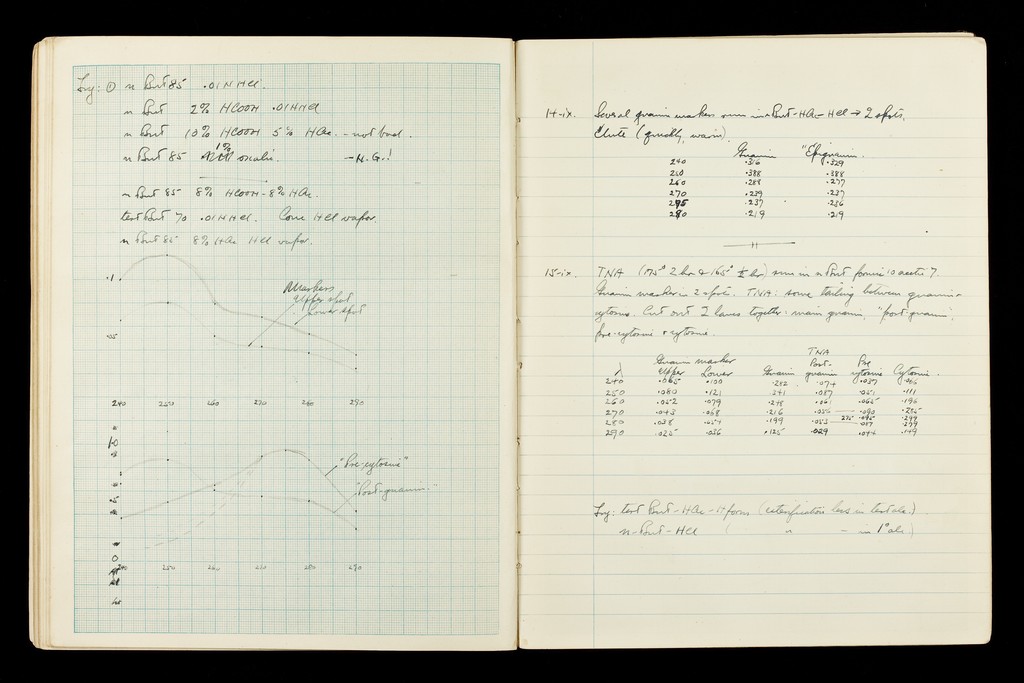 Try: ① n But 85 .01 N HCl.
n But 2% HCOOH .01 N HCl
n But 10% HCOOH 5% HAc. - not bad.
1%
n But 85 oxalic. - N.G.!
n But 85 8% HCOOH - 8% HAc.
tert But 70 .01 N HCl. Conc HCl vapor.
n But 85 8% HAc HCl vapor.
.1
Markers
Upper spot
Lower spot
.05
240 250 260 270 280 290
1.0
"Pre-cytosine"
"Post-guanin."
.5
0
240 250 260 270 280 290
14-ix. Several guanin markers run in n But-HAc-HCl → 2 spots.
Elute (quickly, warm).
Guanin "Epiguanin.
240 .316 .329
250 .388 .388
260 .288 .277
270 .239 .237
275 .237 .236
280 .219 .219
15-ix. TNA (175° 2 hr & 165° ½ hr) run in n But formic 10 acetic 7.
Guanin marker in 2 spots. TNA: some tailing between guanin +
cytosine. Cut out 2 lanes together: main guanin, "post-guanin",
pre-cytosine + cytosine.
TNA
Guanin marker Post- Pre
λ Upper Lower Guanin guanin cytosine Cytosine.
240 .065 .100 .282 .074 .037
250 .080 .121 .341 .087 .051 .111
260 .052 .079 .248 .061 .065 .196
270 .043 .068 .216 .056 .090
275 .095 .299
280 .038 .057 .199 .053 .087 .279
290 .025 .036 .125 .029 .149
Try: tert But-HAc-H form (esterification less in tert alc.)
n-But-HCl ( " - in 1° alc)